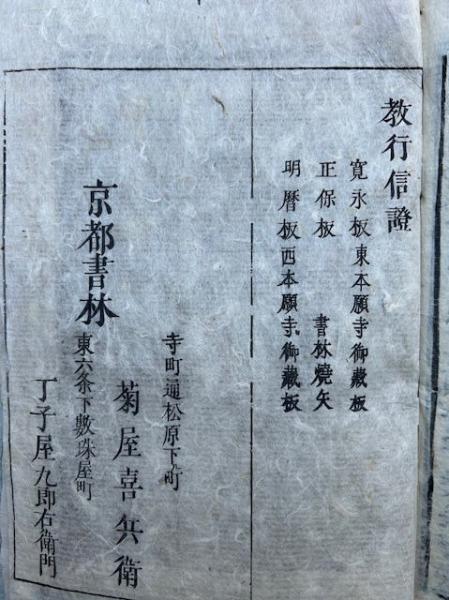 教行信證
寛永板東本願寺御蔵板
正保板 書林燒失
明暦板西本願寺御蔵板
寺町通松原下ル町
菊屋喜兵衛
京都書林
東六条下數珠屋町
丁子屋九郎右衛門